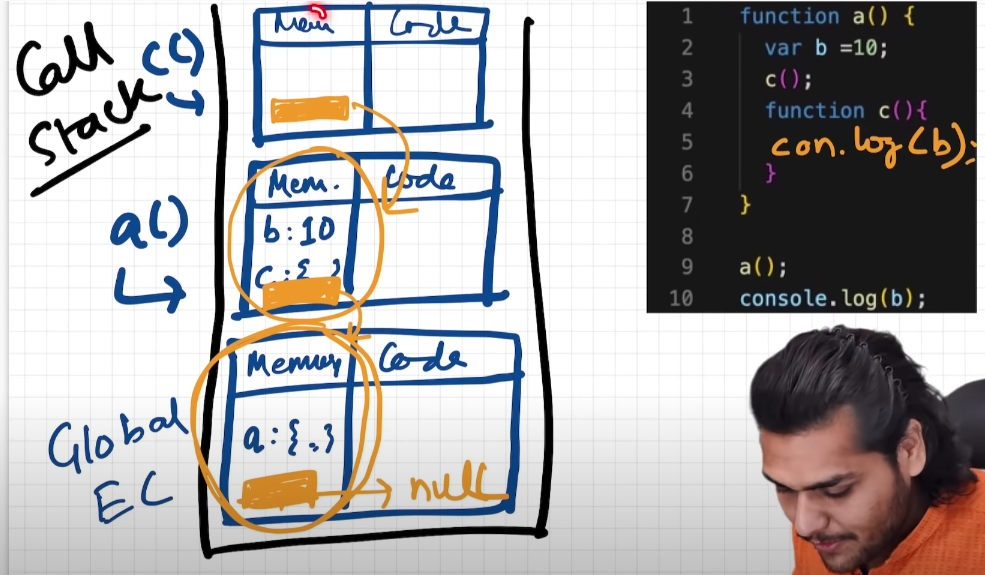 Call
Stack
c()
Mem Code
a()
Mem. Code
b:10
c:{ }
Global
EC
Memory Code
a:{.}
null
1 function a() {
2 var b =10;
3 c();
4 function c(){
5 con.log(b);
6 }
7 }
8
9 a();
10 console.log(b);